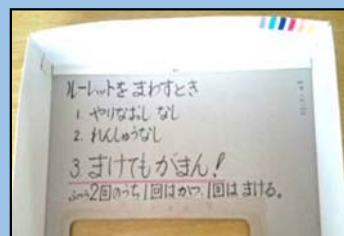 ルーレットを まわすとき
1. やりなおし なし
2. れんしゅうなし
3. まけてもがまん!
ふつう2回のうち1回はかつ、1回は まける。